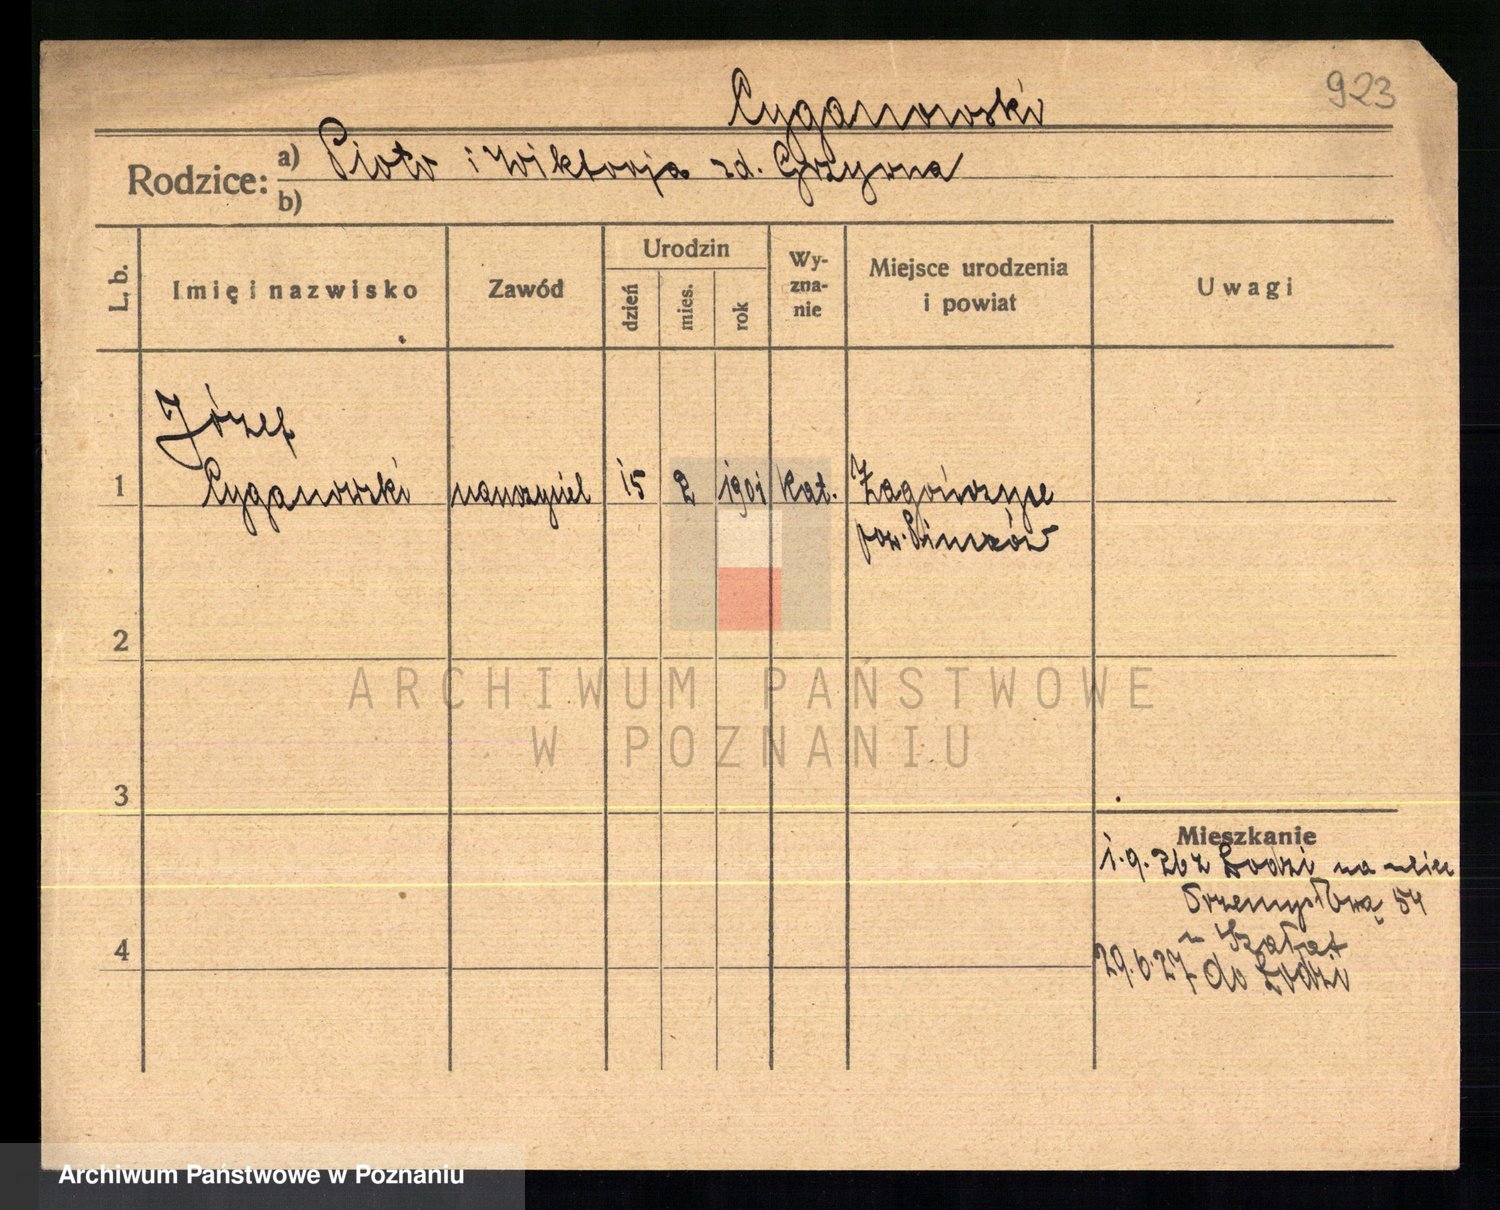 923
Cyganowski
Rodzice: a) Piotr i Wiktorja zd. Grzywna
b)
L. b.
Imię i nazwisko
Zawód
Urodzin
dzień
mies.
rok
Wy-
zna-
nie
Miejsce urodzenia
i powiat
Uwagi
Józef
1 Cyganowski nauczyciel 15 2 1901 kat. Zagórzyce
pow. Pinczów
2
ARCHIWUM PAŃSTWOWE
W POZNANIU
3
Mieszkanie
1.9.26 z Łodzi na ulicę
Przemysłową 54
4
29.6.27 do Łodzi
Archiwum Państwowe w Poznaniu